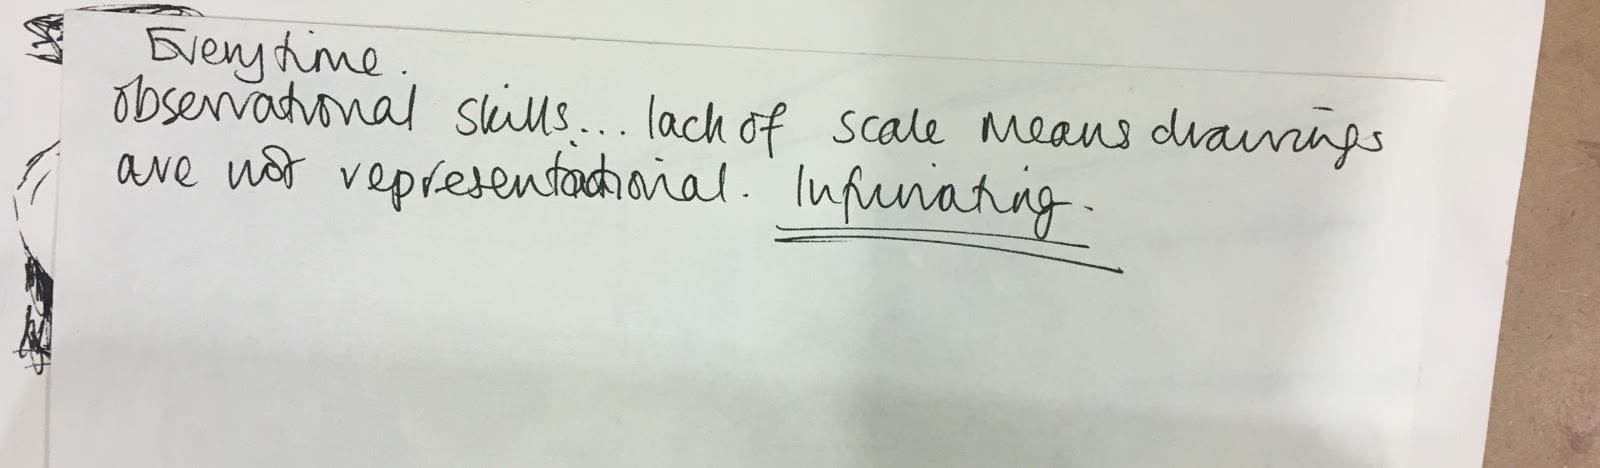 Everytime.
Observational skills... lack of scale means drawings
are not representational. Infuriating.